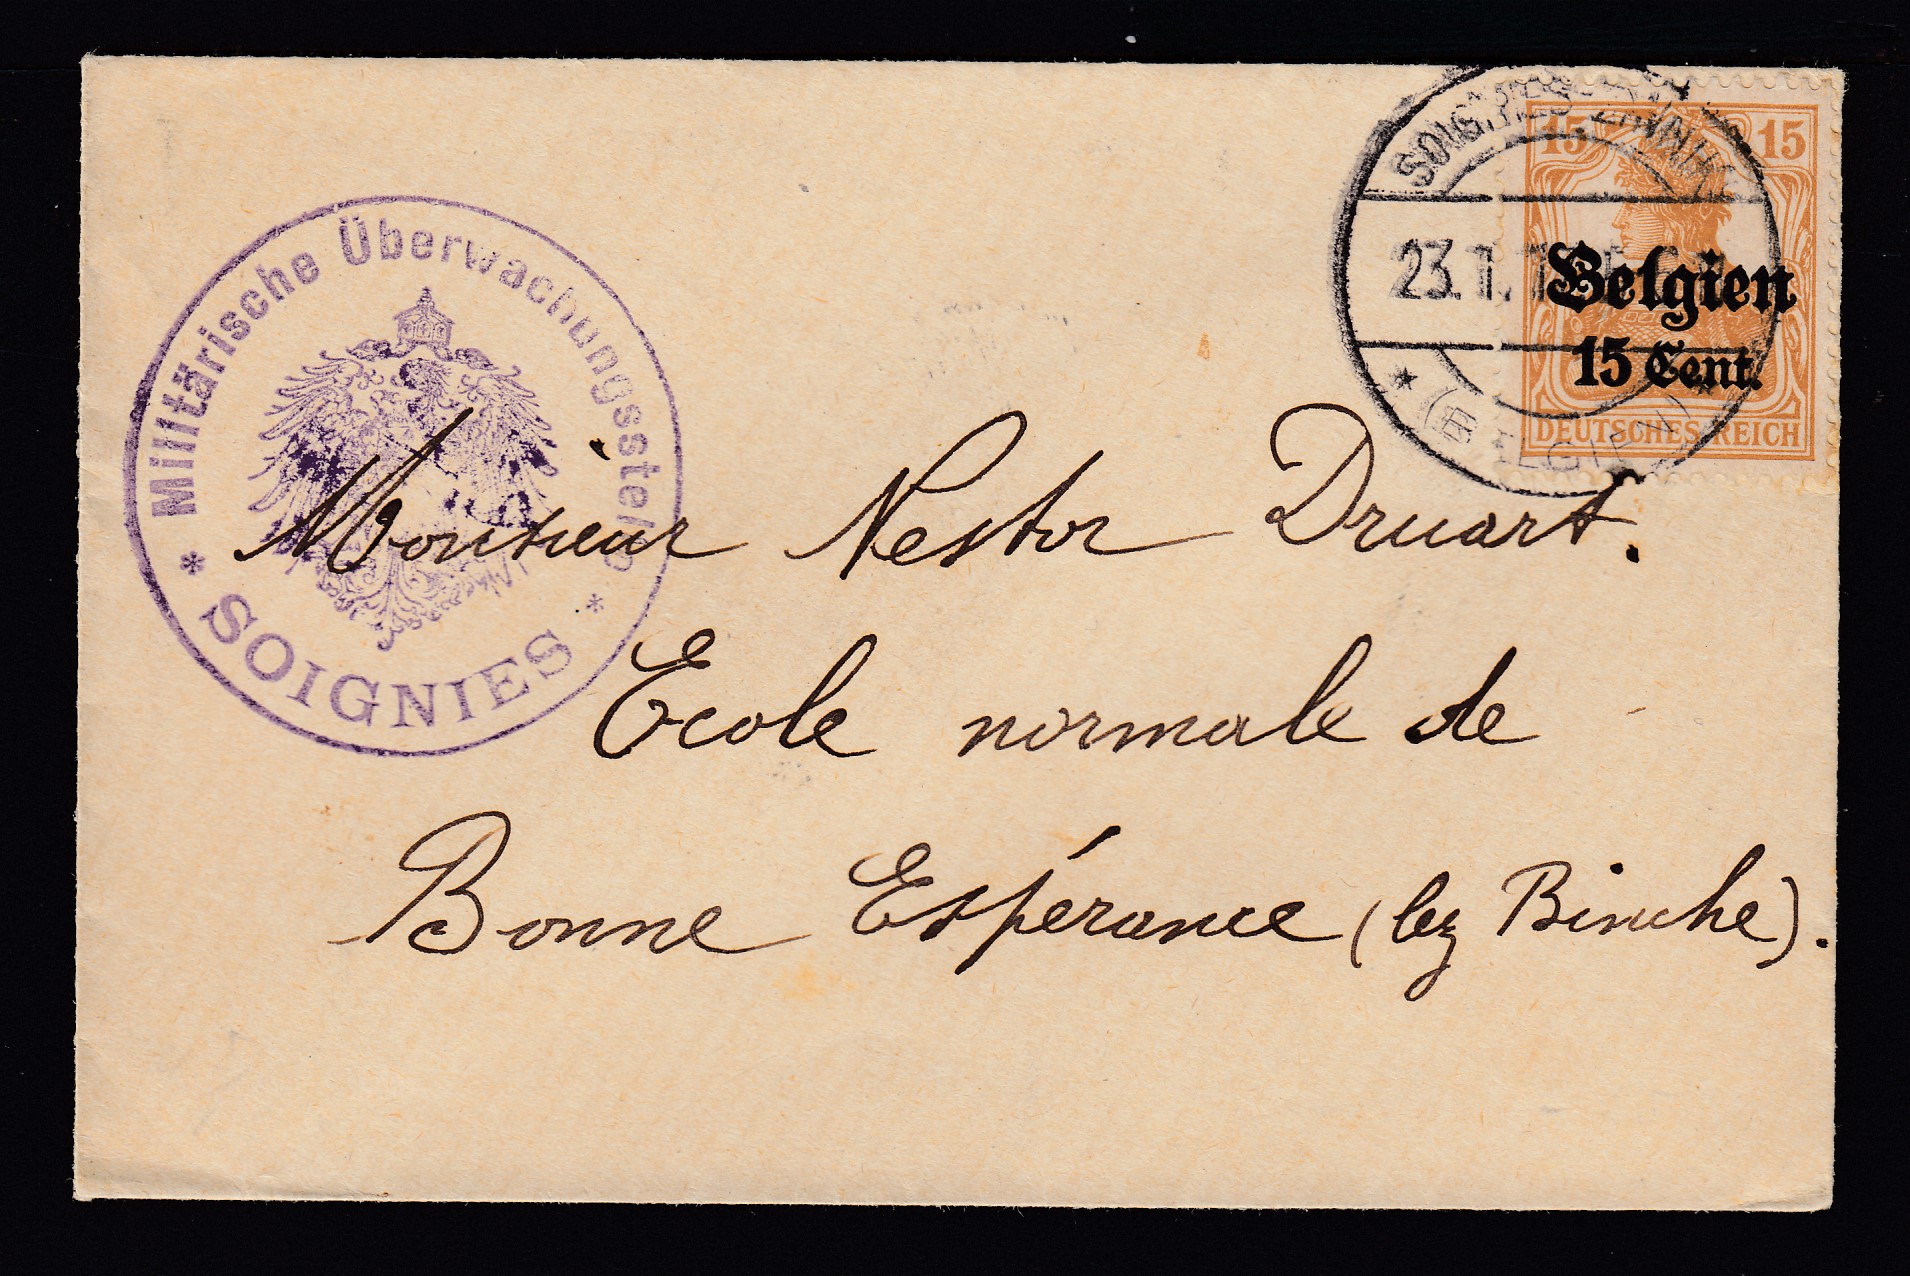 Militärische Überwachungsstelle
* SOIGNIES *
SOIGNIES-ZINNIK
23.1.
* (BELGIEN) *
15 15
Belgien
15 Cent.
DEUTSCHES REICH
Monsieur Nestor Druart.
Ecole normale de
Bonne Espérance (lez Binche).